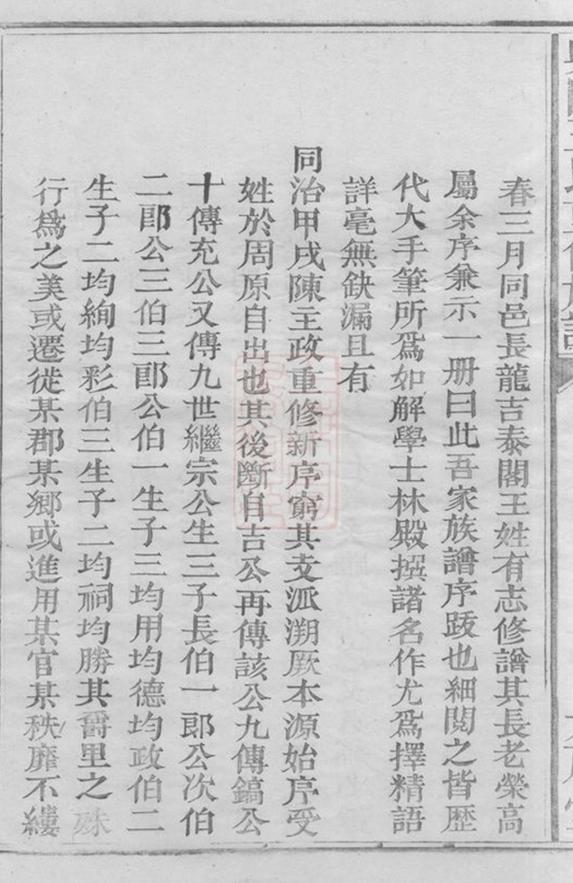 春三月同邑長龍吉泰閣王姓有志修譜其長老榮高
屬余序兼示一册曰此吾家族譜序跋也細閱之皆歷
代大手筆所爲如解學士林殿撰諸名作尤爲擇精語
詳毫無缺漏且有
同治甲戌陳主政重修新序窮其支派溯厥本源始序受
姓於周原自出也其後斷自吉公再傳該公九傳鎬公
十傳充公又傳九世繼宗公生三子長伯一郎公次伯
二郎公三伯三郎公伯一生子三均用均德均政伯二
生子二均絢均彩伯三生子二均祠均勝其爵里之殊
行爲之美或遷徙某郡某鄉或進用某官某秩靡不縷